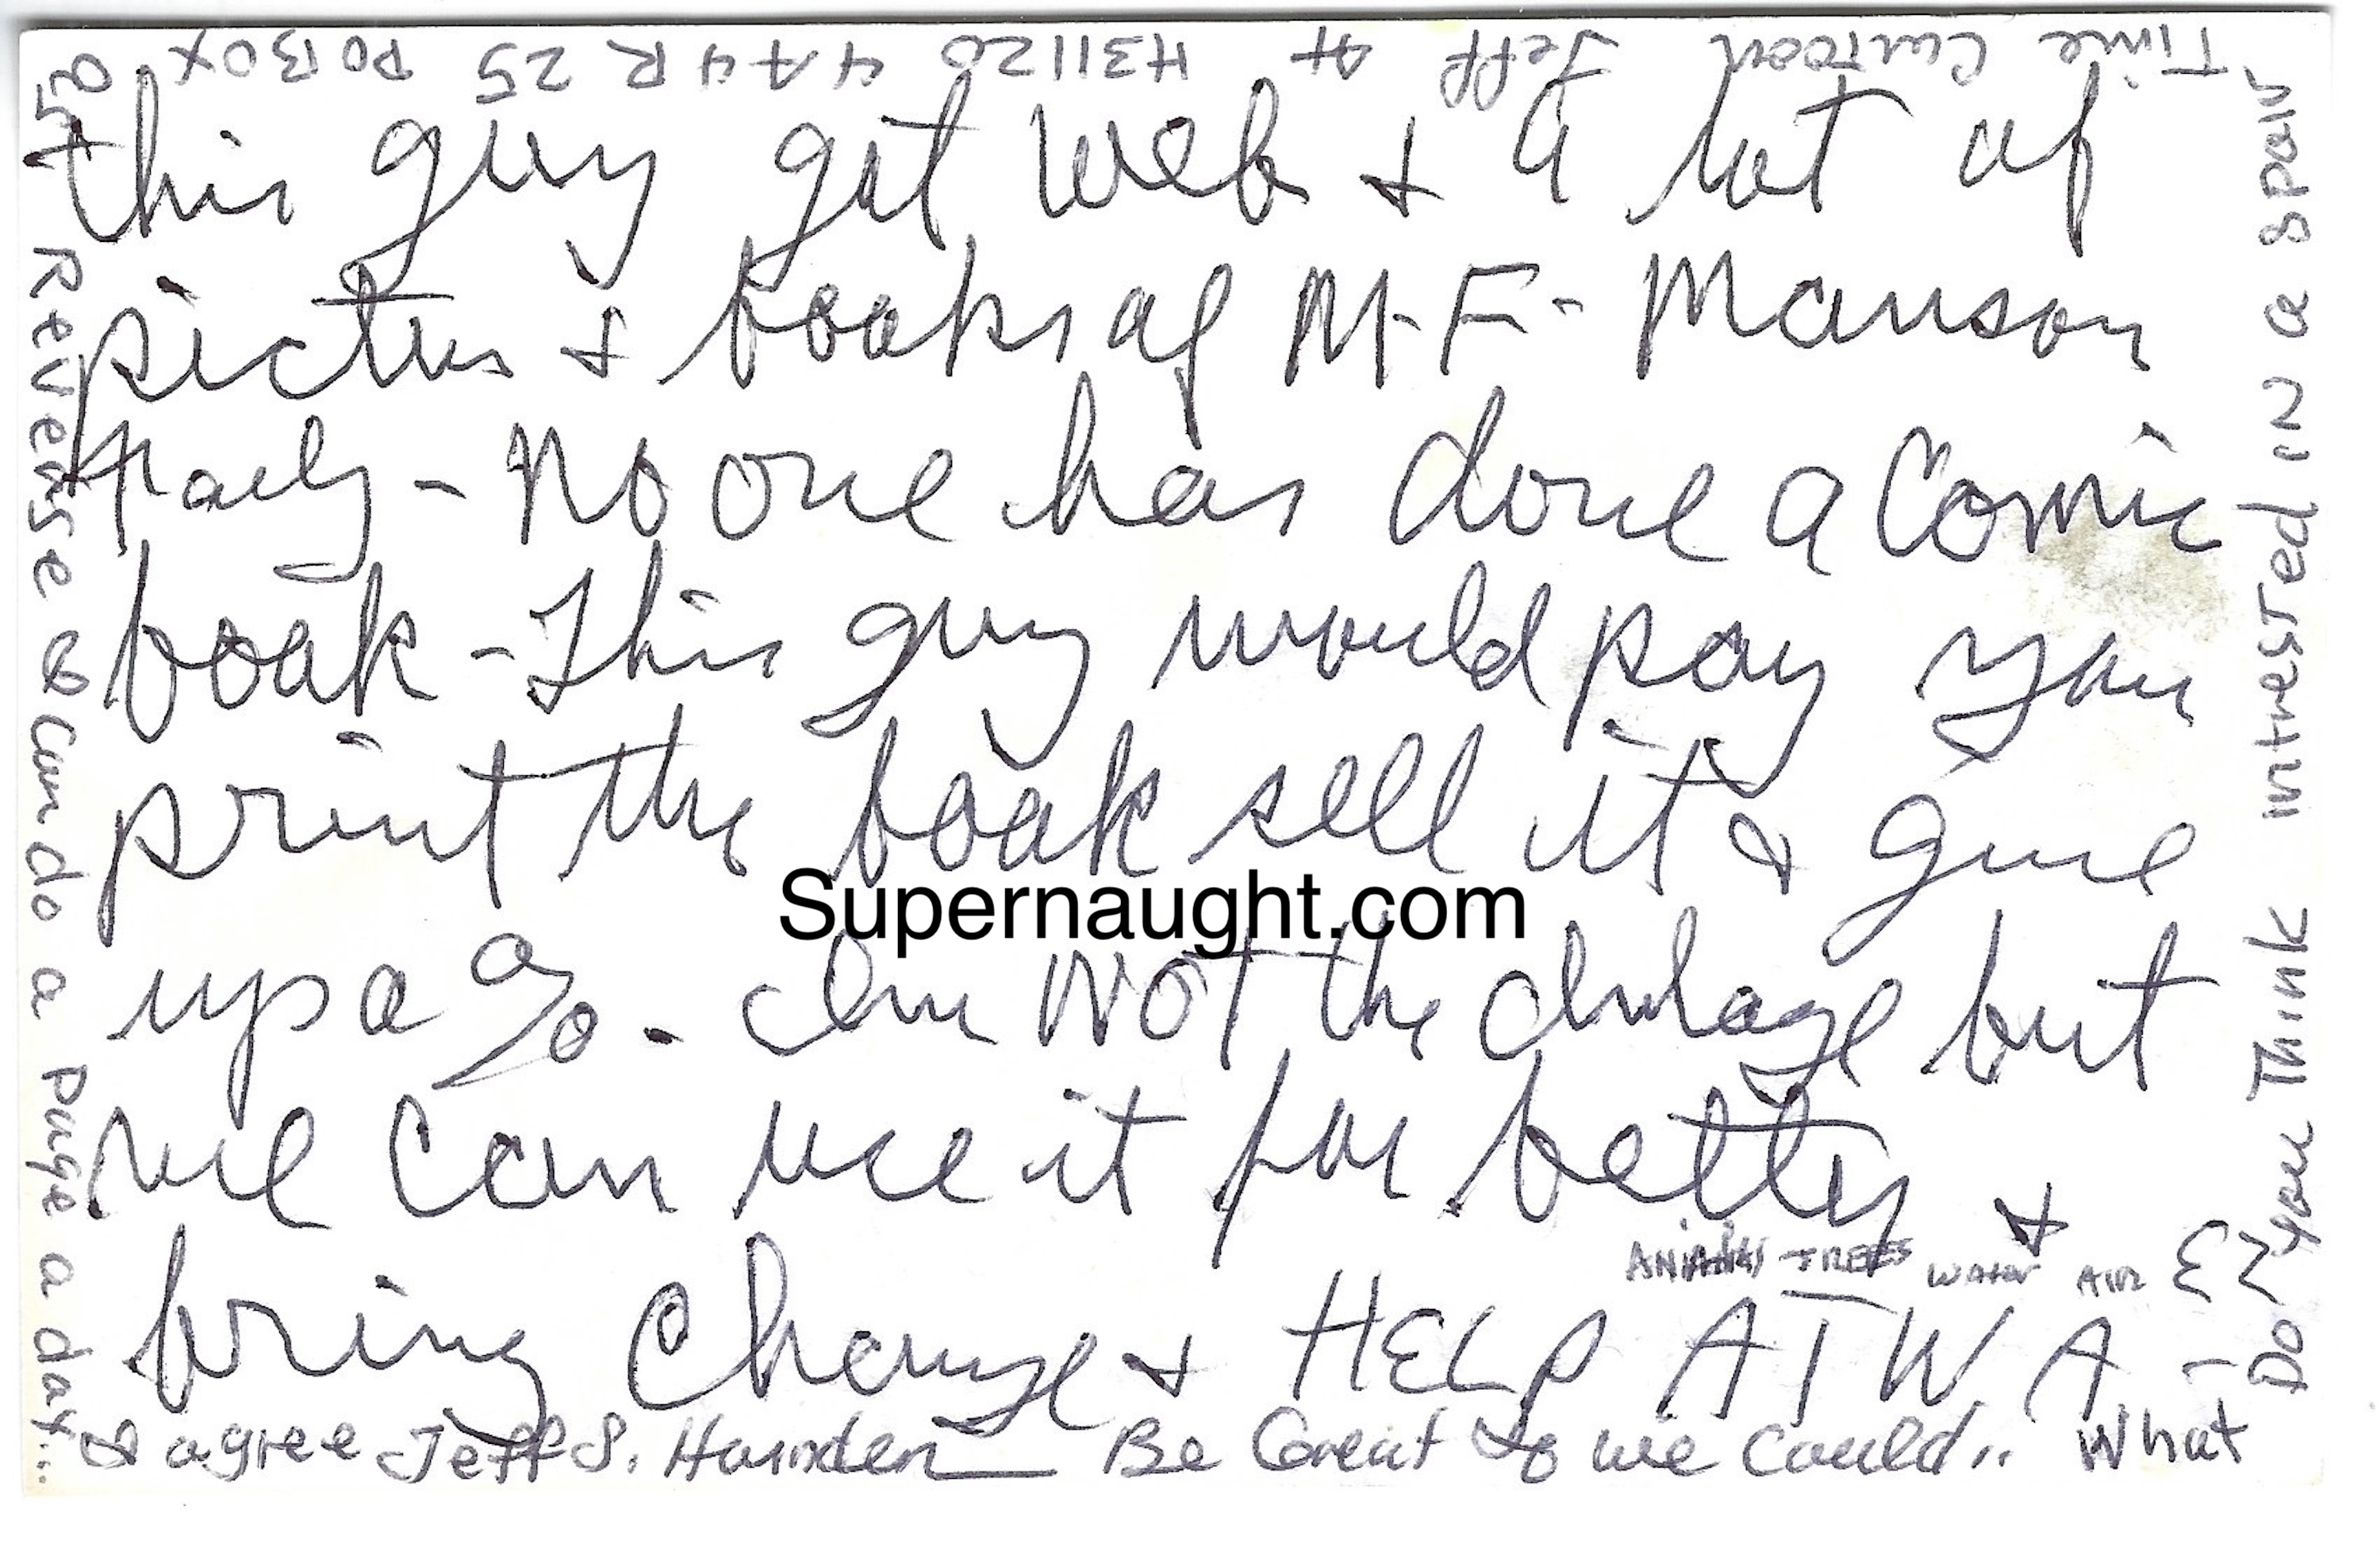 this guy got web & a lot of
pictures & books of M-F- Manson
Family - No one has done a Comic
book - This guy would pay you
print the book sell it & give
up a % - Im NOT the image but
we can use it for better &
ANIMALS TREES WATER AIR
bring Change & HELP A T W A -
I agree Jeff S. Harnden Be Great if we could.. What
Do you Think intrested in a Spair
Time Cartoon Jeff at H31120 4A4R 25 PO BOX
Reverse I can do a page a day...
Supernaught.com